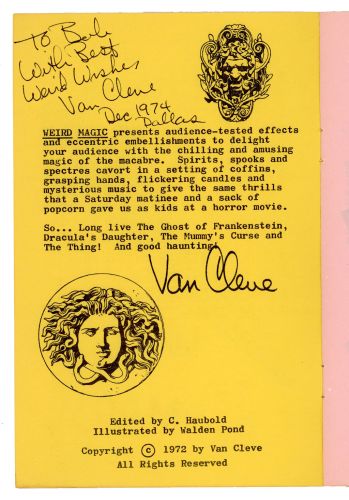 To Bob
With Best
Weird Wishes
Van Cleve
Dec 1974
Dallas
WEIRD MAGIC presents audience-tested effects
and eccentric embellishments to delight
your audience with the chilling and amusing
magic of the macabre. Spirits, spooks and
spectres cavort in a setting of coffins,
grasping hands, flickering candles and
mysterious music to give the same thrills
that a Saturday matinee and a sack of
popcorn gave us kids at a horror movie.
So... Long live The Ghost of Frankenstein,
Dracula's Daughter, The Mummy's Curse and
The Thing! And good haunting!
Van Cleve
Edited by C. Haubold
Illustrated by Walden Pond
Copyright © 1972 by Van Cleve
All Rights Reserved